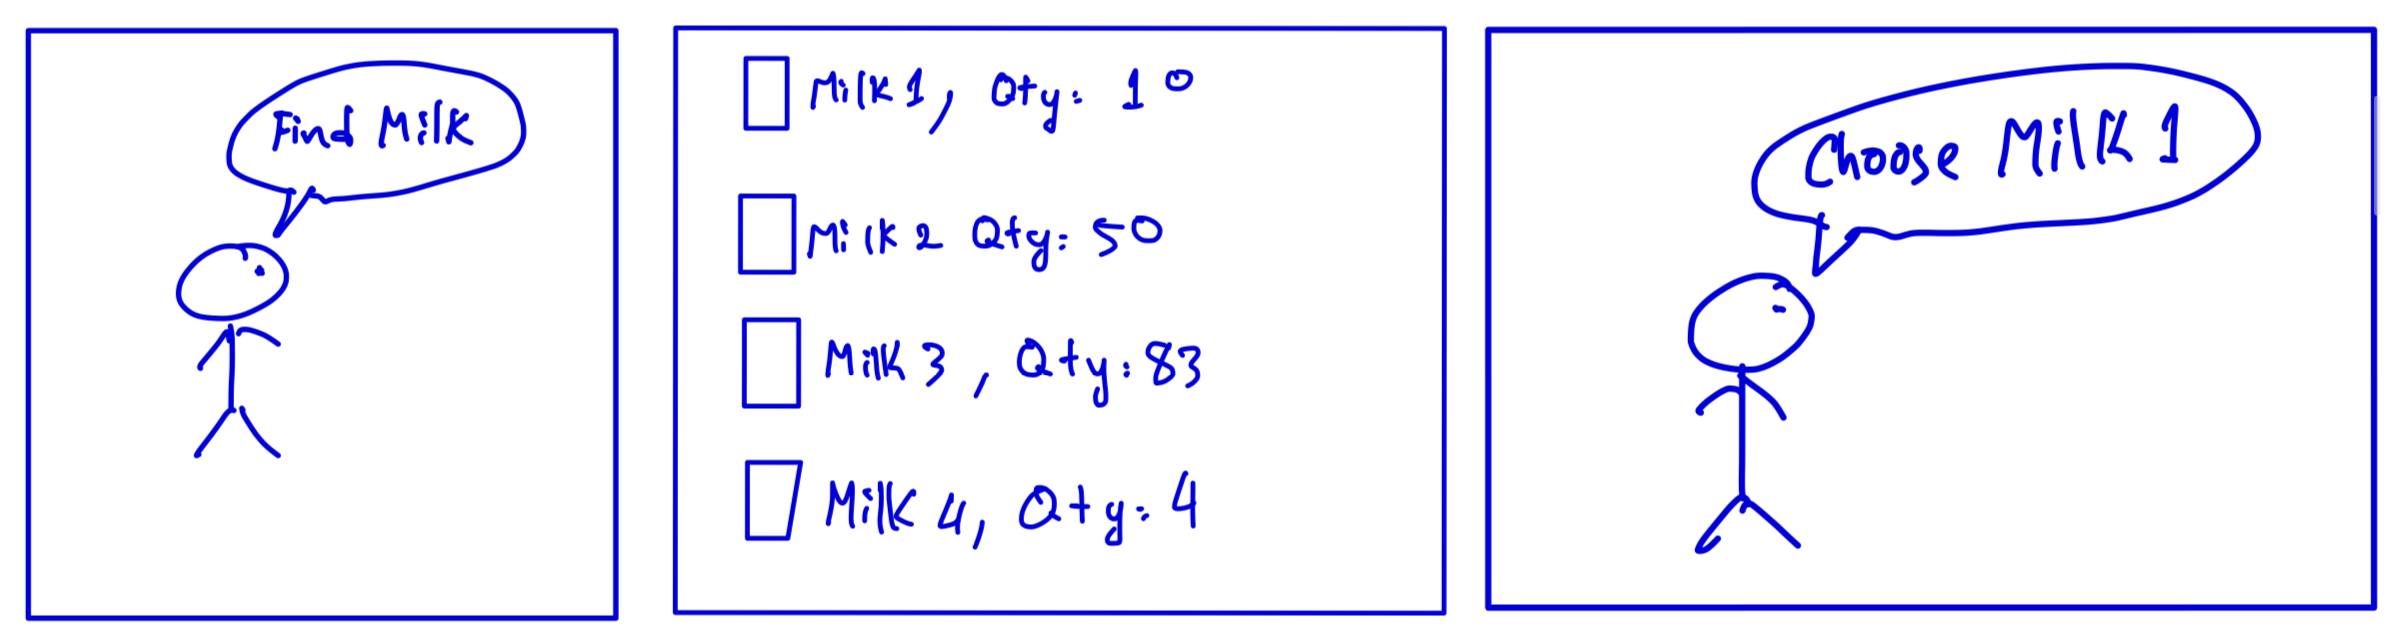 Find Milk
Milk 1, Qty: 10
Milk 2 Qty: 50
Milk 3, Qty: 83
Milk 4, Qty: 4
Choose Milk 1